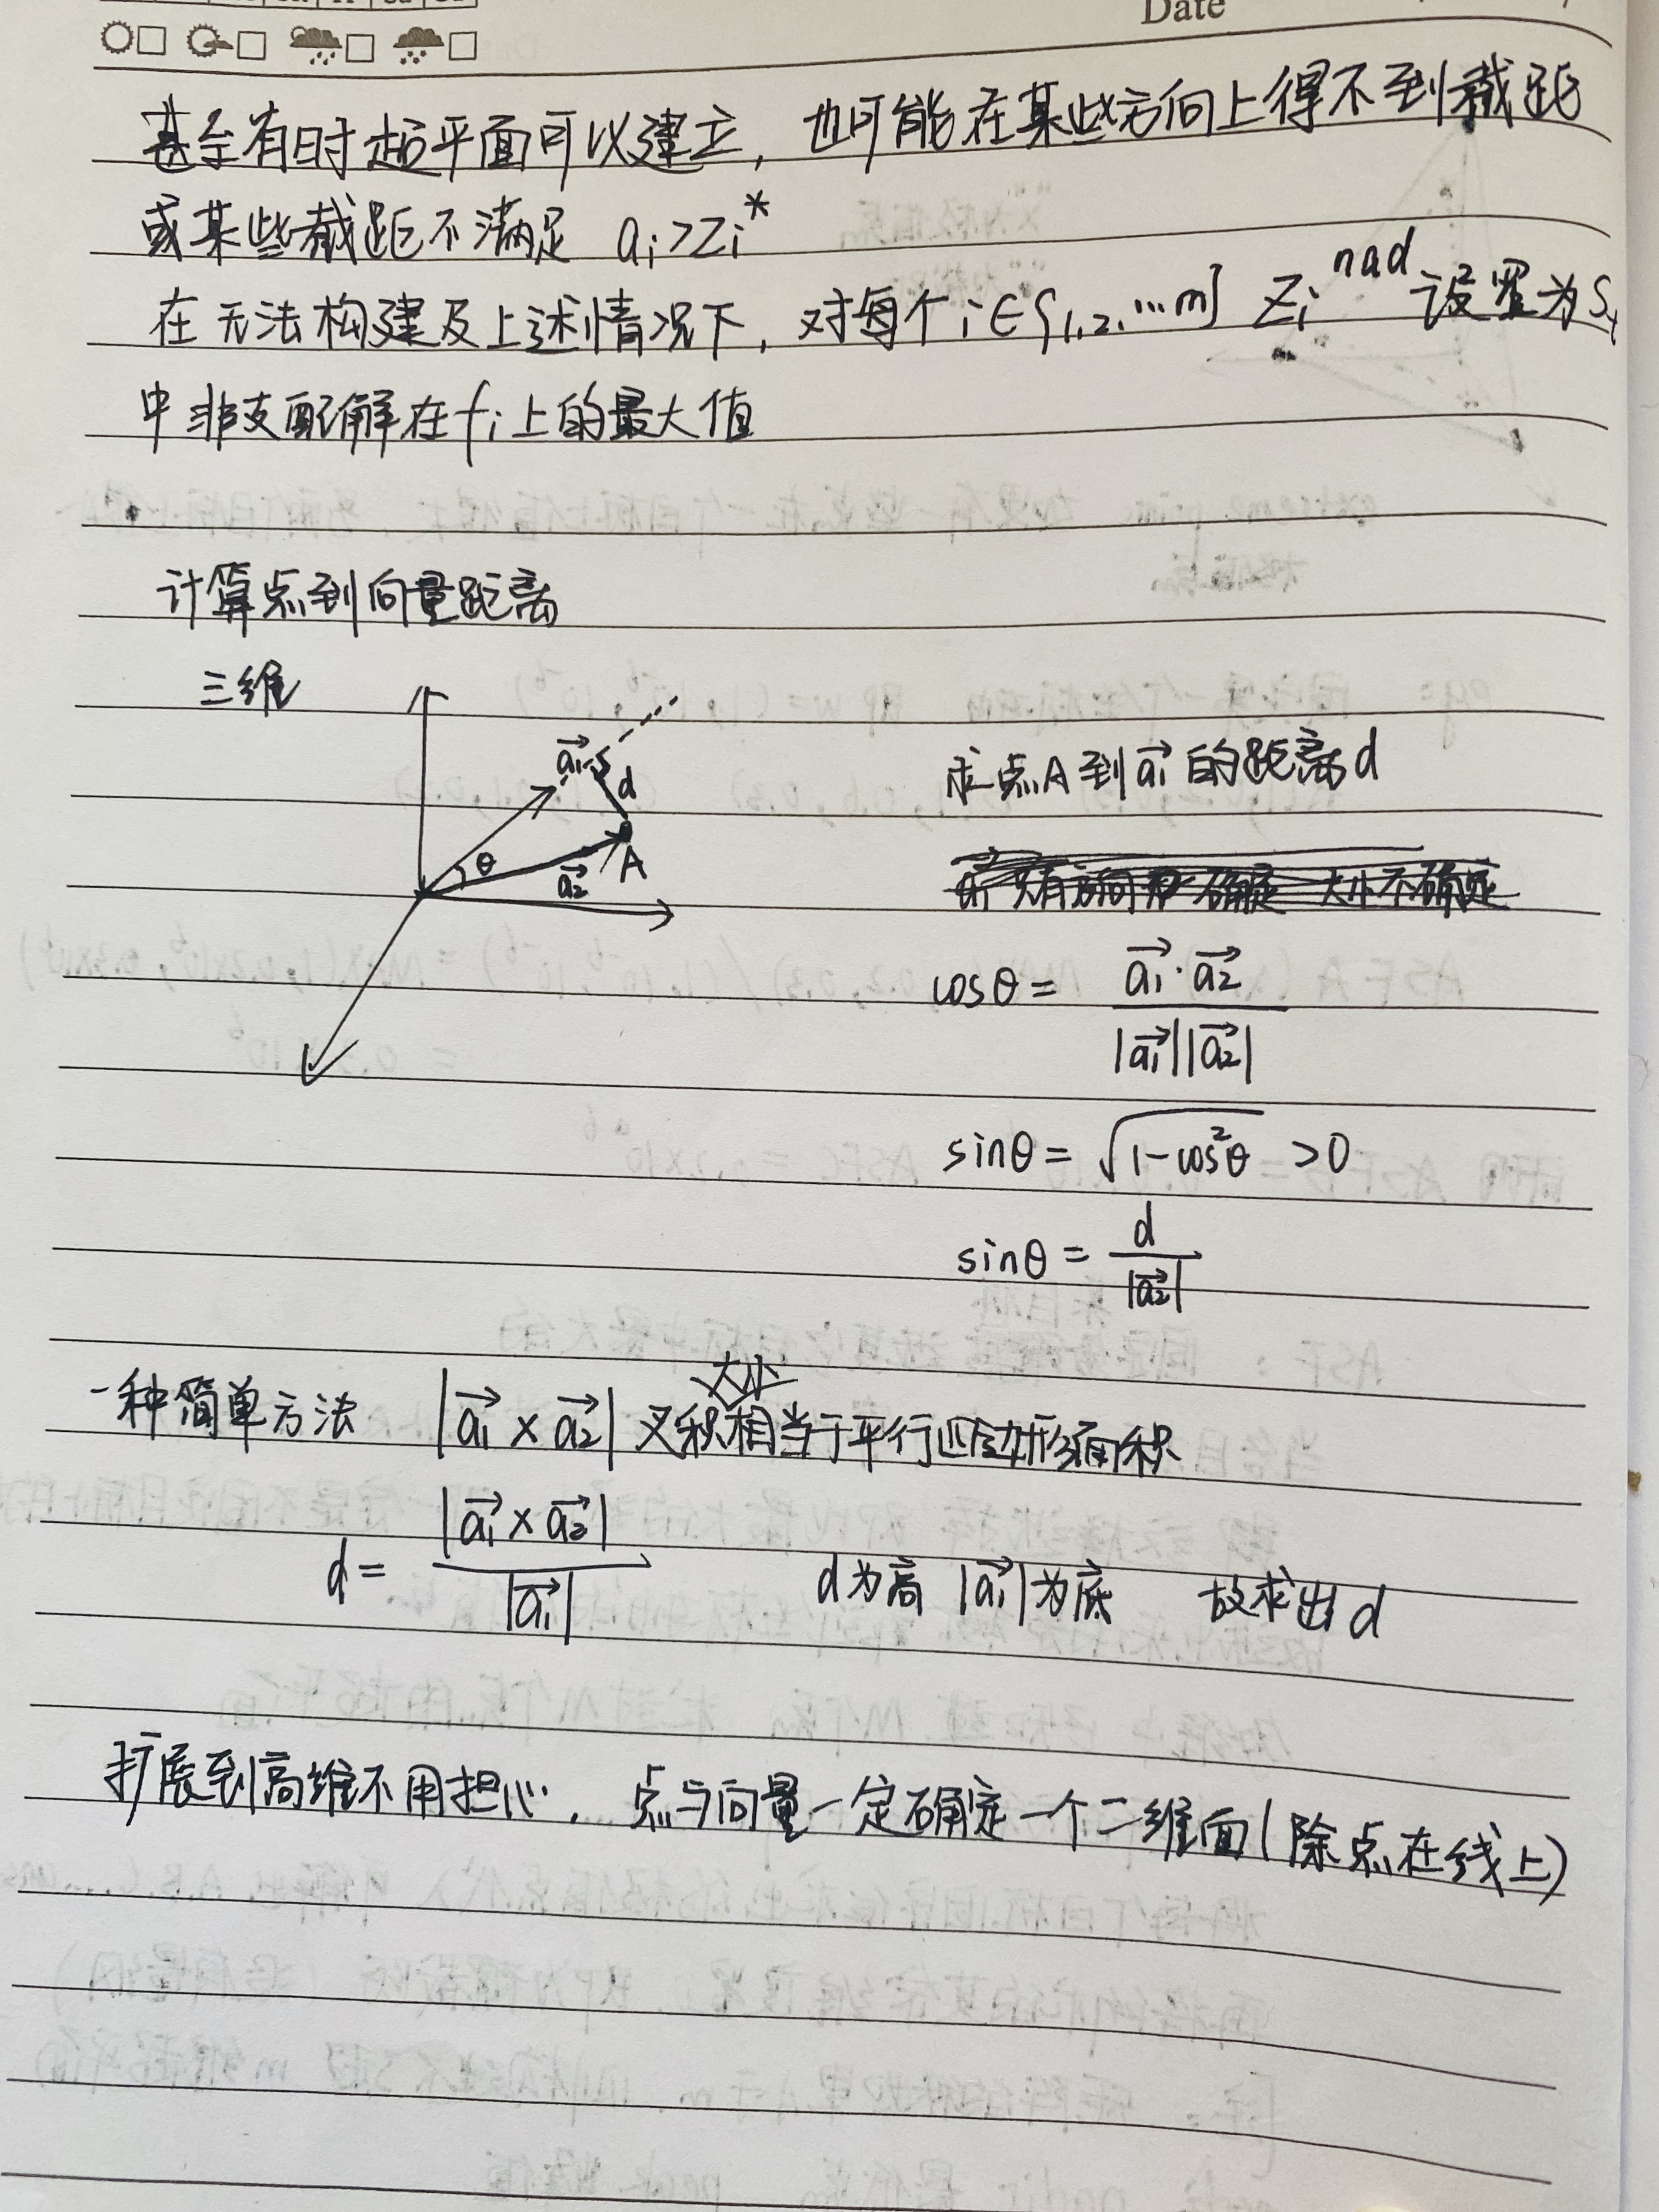 Date
甚至有时超平面可以建立，也可能在某些方向上得不到截距
或某些截距不满足 ai>Zi*
在无法构建及上述情况下，对每个i∈{1,2,…m} Zi^nad 设置为St
中非支配解在fi上的最大值
计算点到向量距离
三维
a1→
d
θ
a2→
A
求点A到a1→的距离d
cosθ = (a1→·a2→) / (|a1→||a2→|)
sinθ = √(1-cos²θ) >0
sinθ = d / |a2→|
一种简单方法 |a1→ × a2→| 叉积大小相当于平行四边形面积
d = |a1→ × a2→| / |a1→| d为高 |a1→|为底 故求出d
扩展到高维不用担心，点与向量一定确定一个二维面(除点在线上)